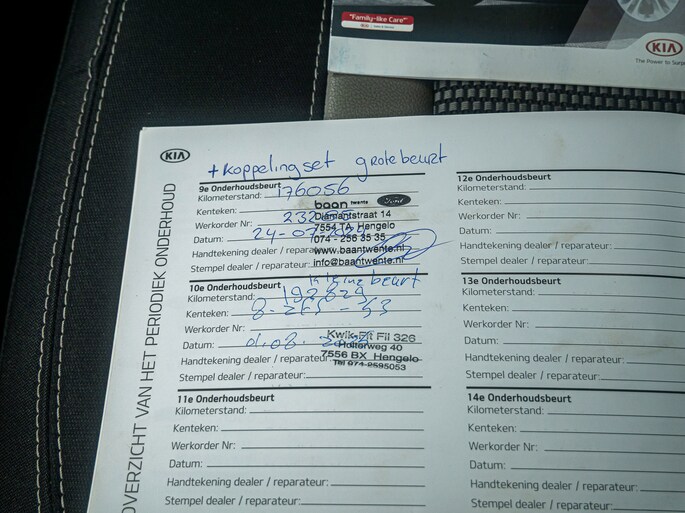 "Family-like Care"
KIA
The Power to Surp
KIA
OVERZICHT VAN HET PERIODIEK ONDERHOUD
+ koppelingset grote beurt
9e Onderhoudsbeurt
Kilometerstand: 176056
Kenteken:
baan twente Ford
Werkorder Nr: 232
Diamantstraat 14
7554 TA Hengelo
Datum: 24-07-
074 - 256 35 35
Handtekening dealer / reparateur:
www.baantwente.nl
Stempel dealer / reparateur:
info@baantwente.nl
10e Onderhoudsbeurt kleine beurt
Kilometerstand: 192829
Kenteken:
Werkorder Nr:
Kwik-Fit Fil 326
Datum:
Holterweg 40
Handtekening dealer / reparateur:
7556 BX Hengelo
Tel 074-2595053
Stempel dealer / reparateur:
11e Onderhoudsbeurt
Kilometerstand:
Kenteken:
Werkorder Nr:
Datum:
Handtekening dealer / reparateur:
Stempel dealer / reparateur:
12e Onderhoudsbeurt
Kilometerstand:
Kenteken:
Werkorder Nr:
Datum:
Handtekening dealer / reparateur:
Stempel dealer / reparateur:
13e Onderhoudsbeurt
Kilometerstand:
Kenteken:
Werkorder Nr:
Datum:
Handtekening dealer / reparateur:
Stempel dealer / reparateur:
14e Onderhoudsbeurt
Kilometerstand:
Kenteken:
Werkorder Nr:
Datum:
Handtekening dealer / reparateur:
Stempel dealer / reparateur: